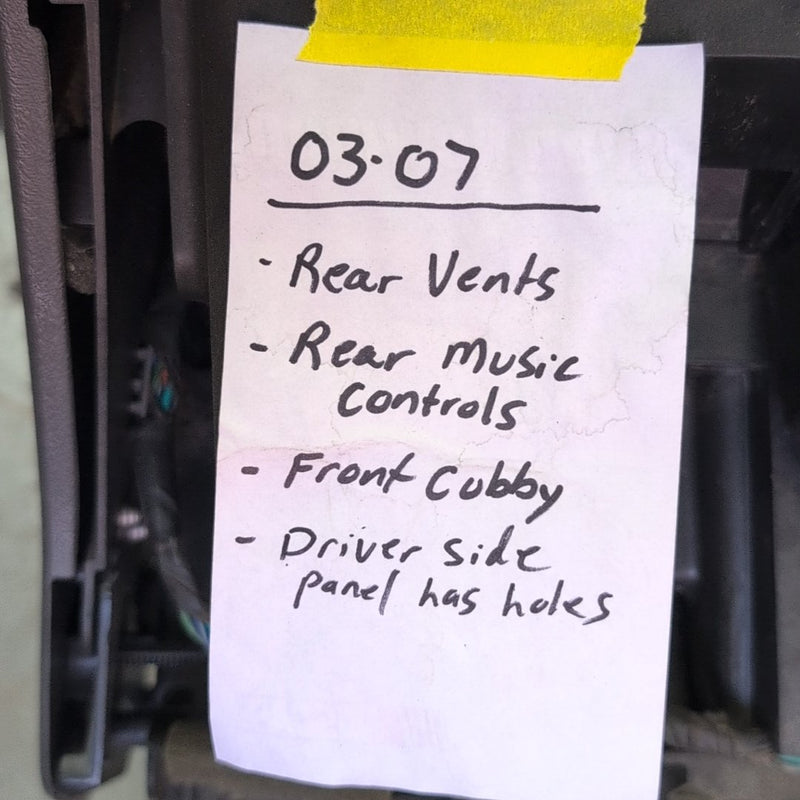 03·07
- Rear Vents
- Rear Music
Controls
- Front Cubby
- Driver side
panel has holes